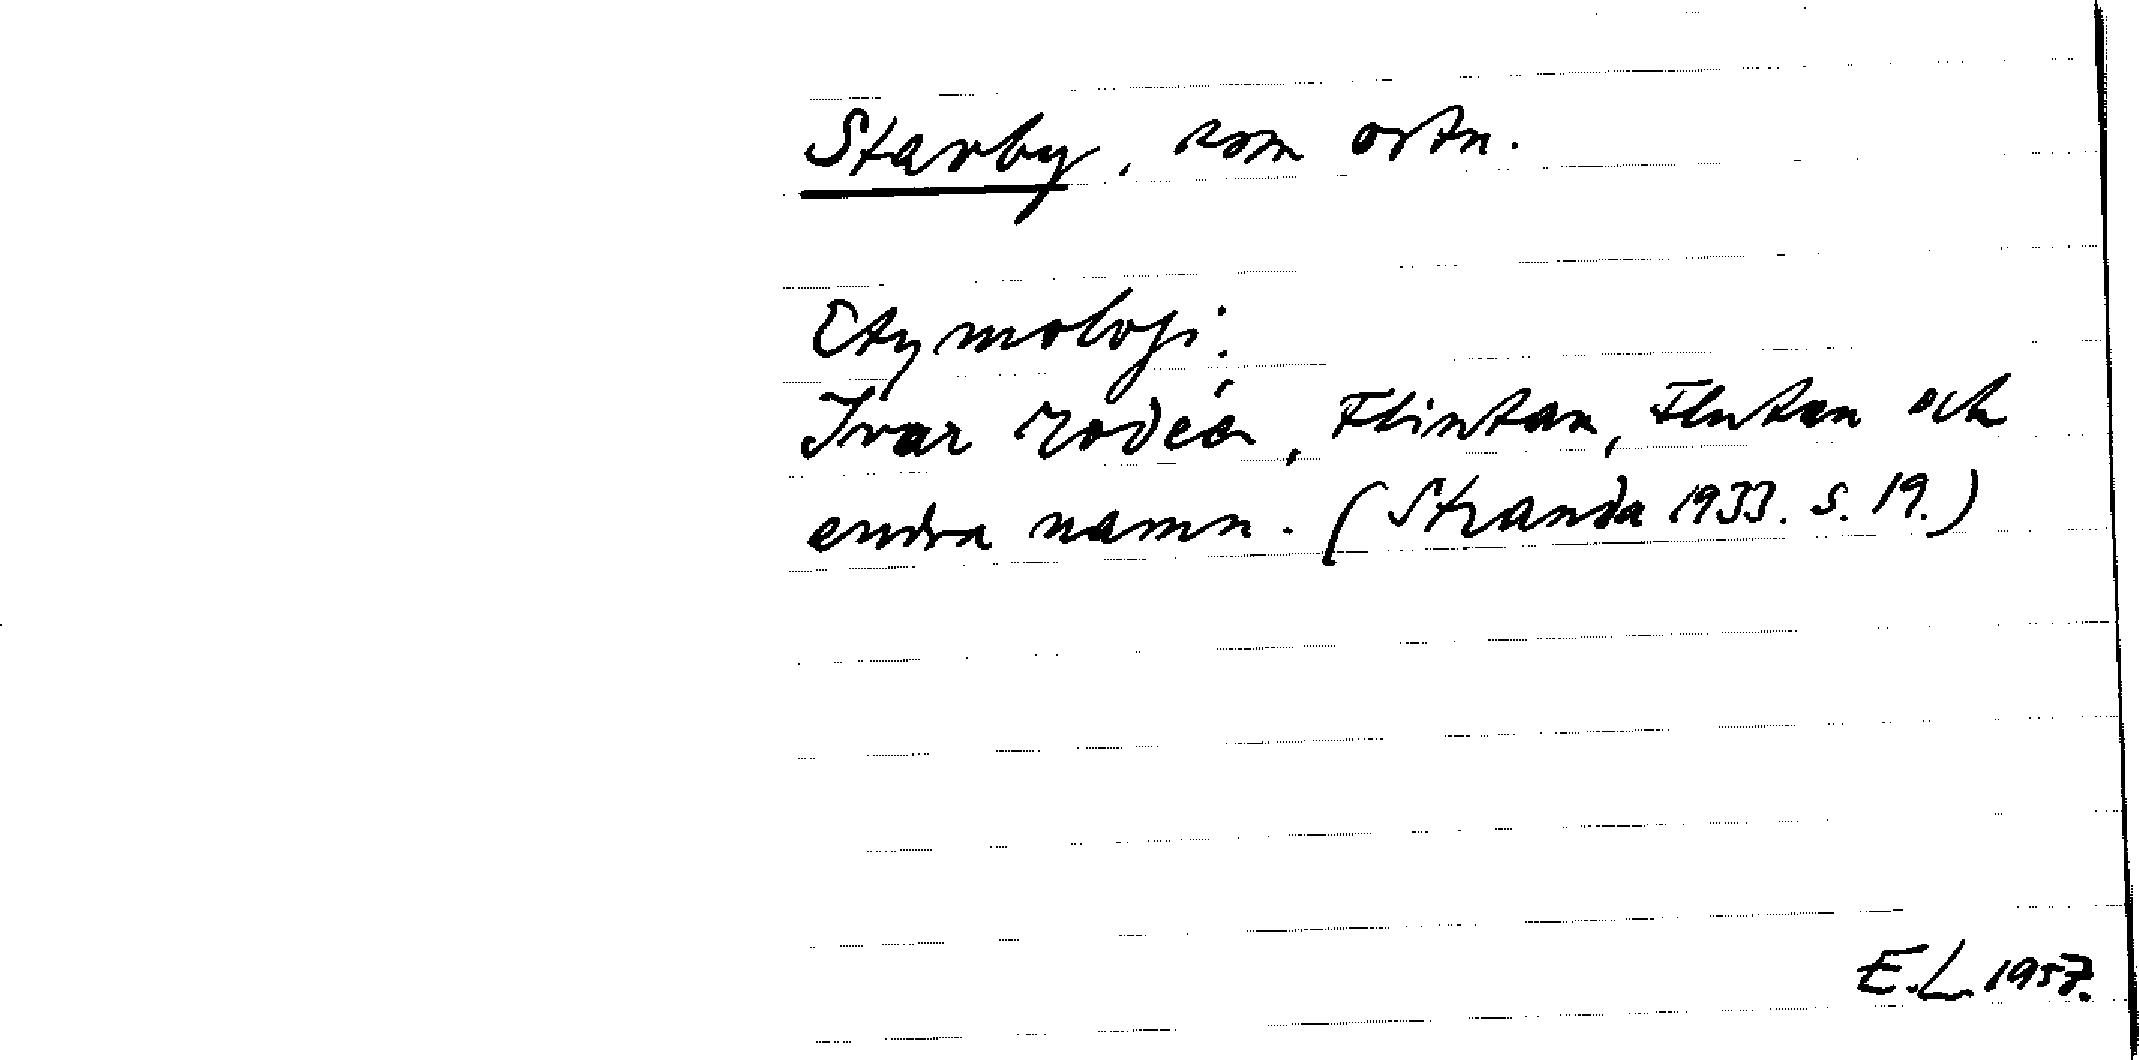 Starby, som ortn.
Etymologi:
Ivar Lodén, Flintan, Flutan och
andra namn. (Stranda 1933. s. 19.)
E.L. 1957.